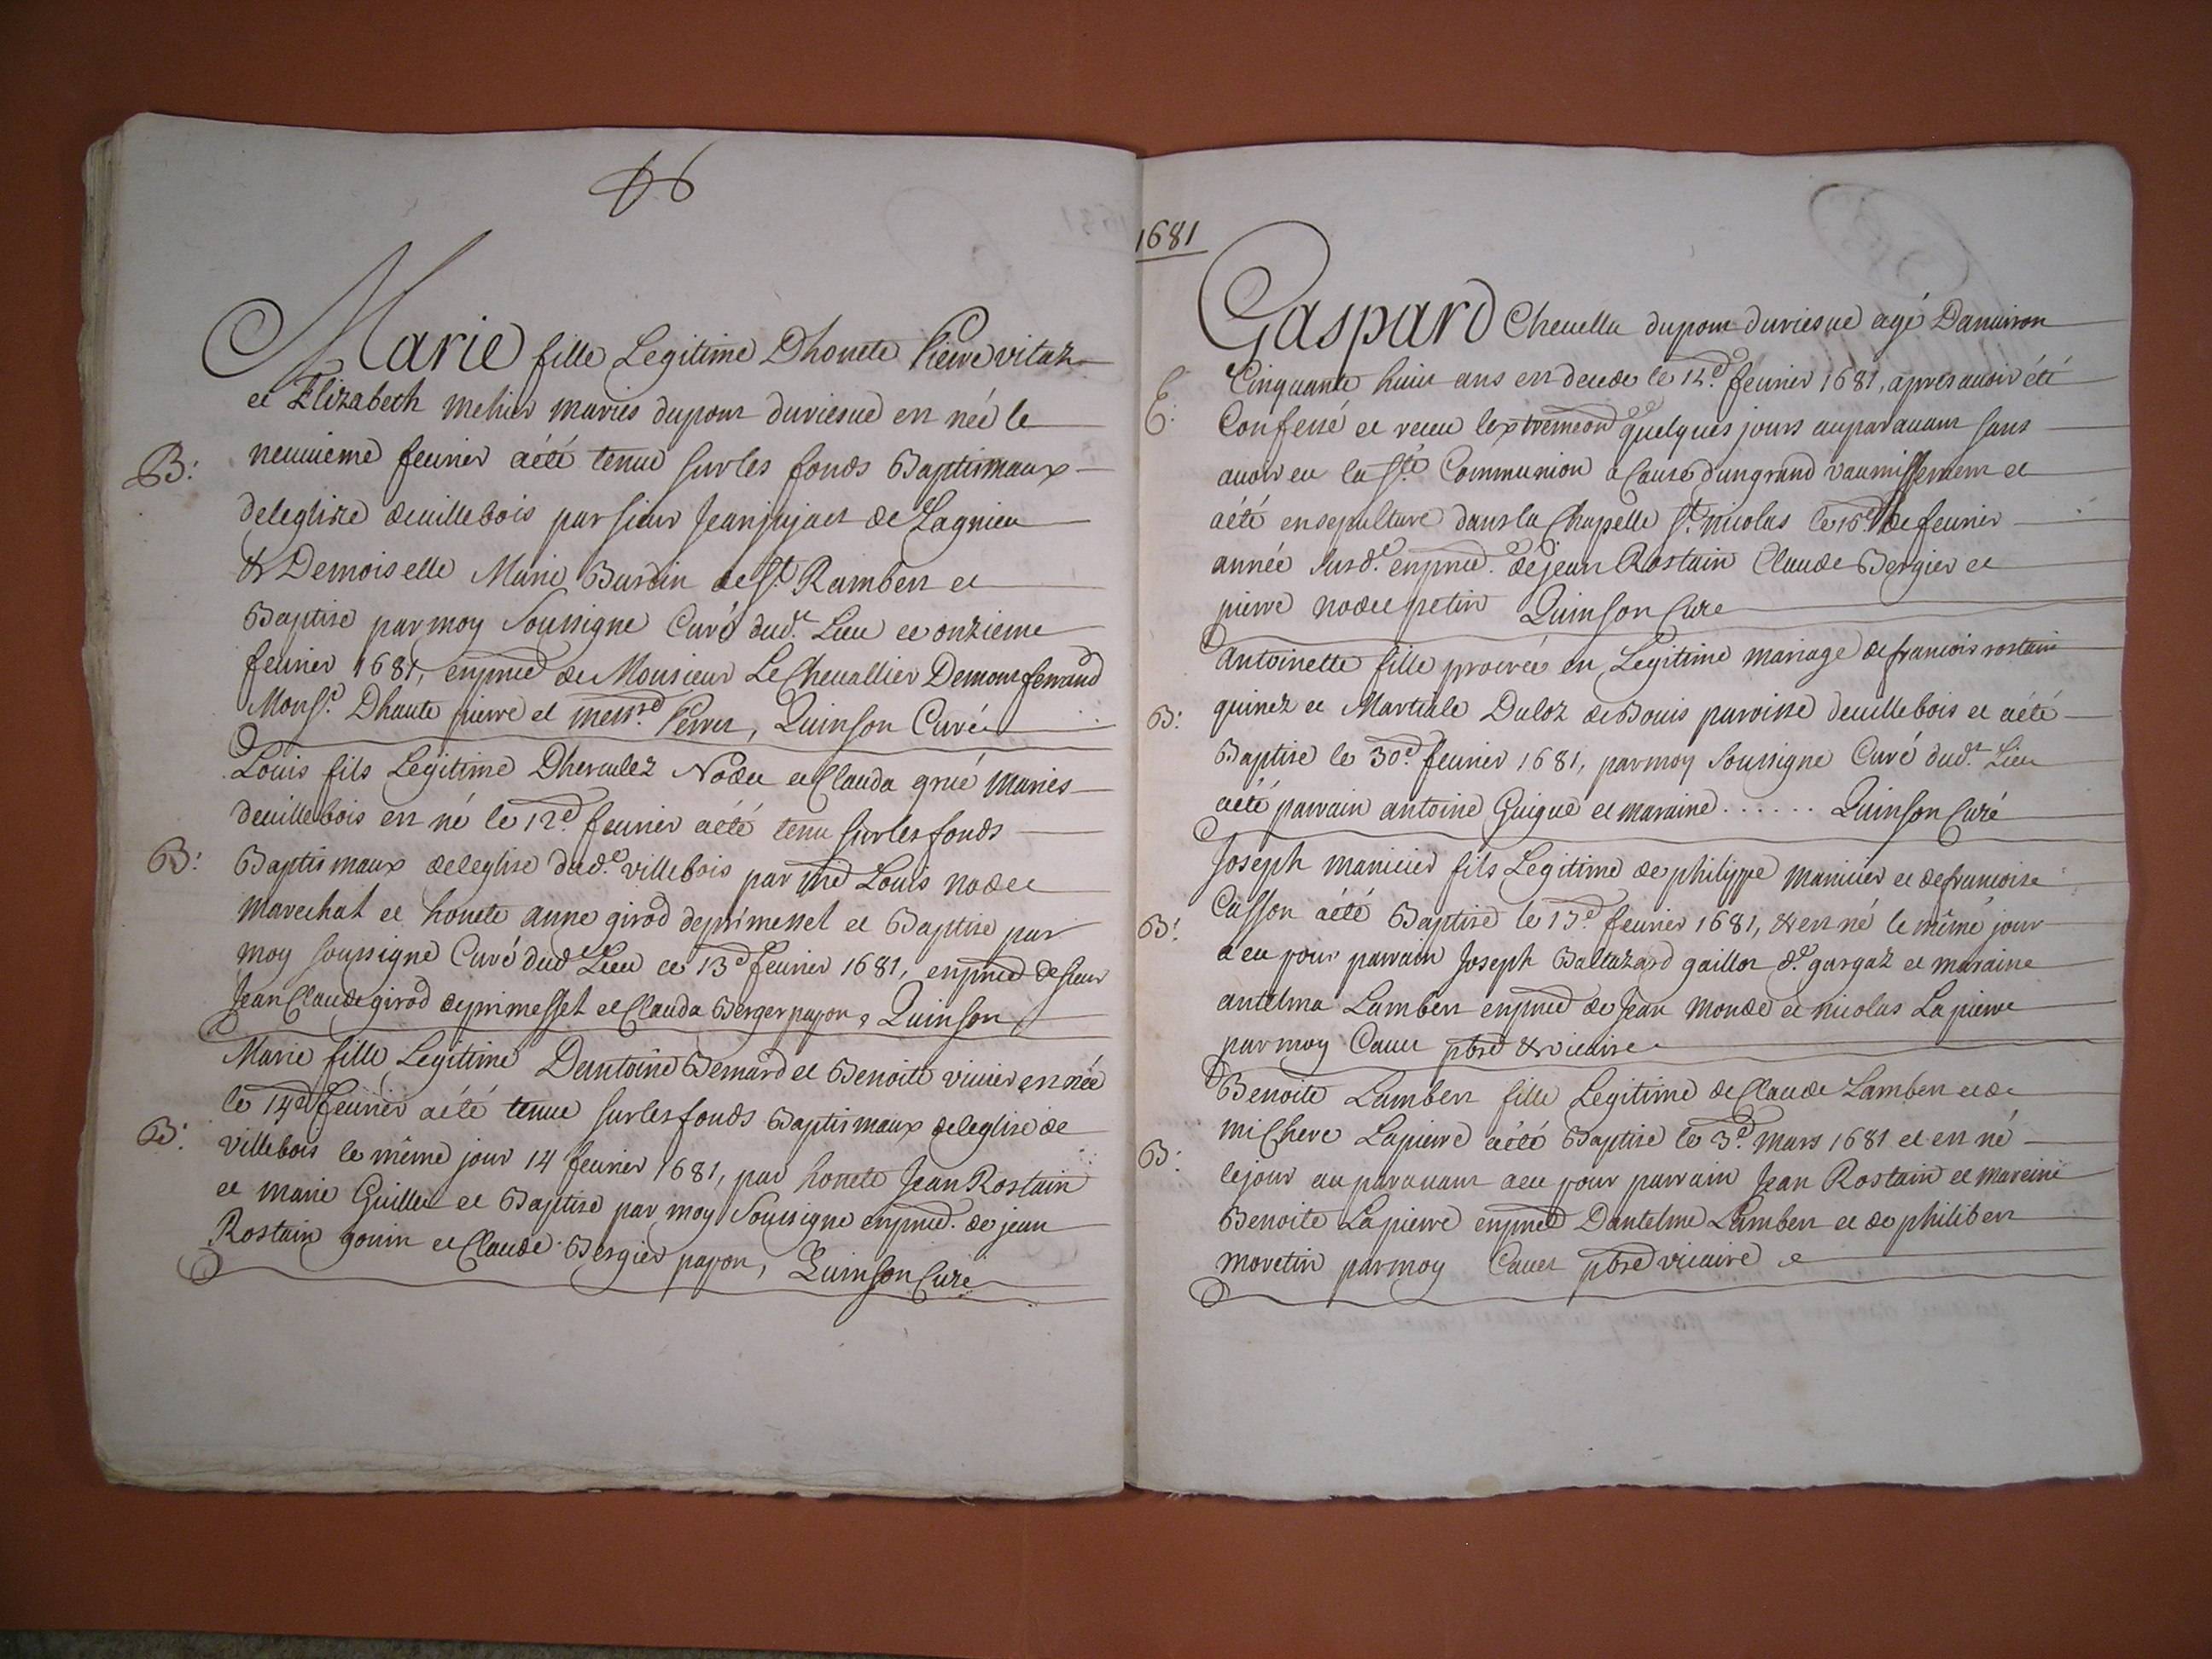 1681
Marie fille Legitime Dhonete Pierre vitaz
et Elizabeth melier maries dupont duriesue est née le
B: neuuieme feurier aété tenue sur les fonds Baptismaux
deleglise deuillebois par sieur Jean jujat de Lagnieu
& Demoiselle Marie Bardin de St Rambert et
Baptise par moy Soussigne Curé dud.t Lieu ce onzieme
feurier 1681, en pnce de Monsieur Le Cheuallier Demontferrand
Mons.r Dhaute pierre et mess.re Perret, Quinson Curé
Louis fils Legitime Dherculez Nodet et Clauda grué maries
deuillebois est né le 12.e feurier aété tenu sur les fonds
B: Baptismaux deleglise dud.t villebois par me Louis nodet
marechal et honete anne girod deprimesset et Baptise par
moy soussigne Curé dud.t Lieu ce 13.e feurier 1681, en pnce de sieur
Jean Claude girod deprimesset et Clauda Berger payon, Quinson
Marie fille Legitime Dantoine Bernard et Benoite viuier est née
le 14.e feurier aété tenue sur les fonds Baptismaux deleglise de
B: villebois le même jour 14 feurier 1681, par honete Jean Rostain
et marie Guillet et Baptise par moy Soussigne en pnce. de jean
Rostain gonin et Claude Bergier payon, Quinson Curé
Gaspard Cheuella dupont duriesue agé Danuiron
E: Cinquante huit ans est decede le 14.e feurier 1681, apres auoir été
Confessé et receu lextremeon quelques jours auparauant sans
auoir eu la S.te Communion a Cause dun grand vaumissement et
aété ensepulturé dans la Chapelle S.t nicolas le 15.e de feurier
année susd.e en pnce. de jean Rostain Claude Bergier et
pierre nodet petin Quinson Curé
Antoinette fille procreé en Legitime mariage de francois rostain
B: guinez et Martiale Duloz de Bouis paroisse deuillebois et aété
Baptise le 30.e feurier 1681, par moy Soussigne Curé dud.t Lieu
aété parrain antoine Guigue et maraine . . . . . . Quinson Curé
Joseph manicier fils Legitime de philippe manicier et de francoise
B: Casson aété Baptisé le 17.e feurier 1681, & est né le même jour
a eu pour parrain Joseph Baltazard gaillot d.t gargaz et maraine
antelma Lambert en pnce de Jean Monde et nicolas Lapierre
par moy Cauet pbre & vicaire
Benoite Lambert fille Legitime de Claude Lambert et de
B: michere Lapierre aété Baptise le 3.e mars 1681 et est né
le jour au parauant a eu pour parrain Jean Rostain et mareine
Benoite Lapierre en pnce Dantelme Lambert et de philibert
moretin par moy Cauet pbre vicaire